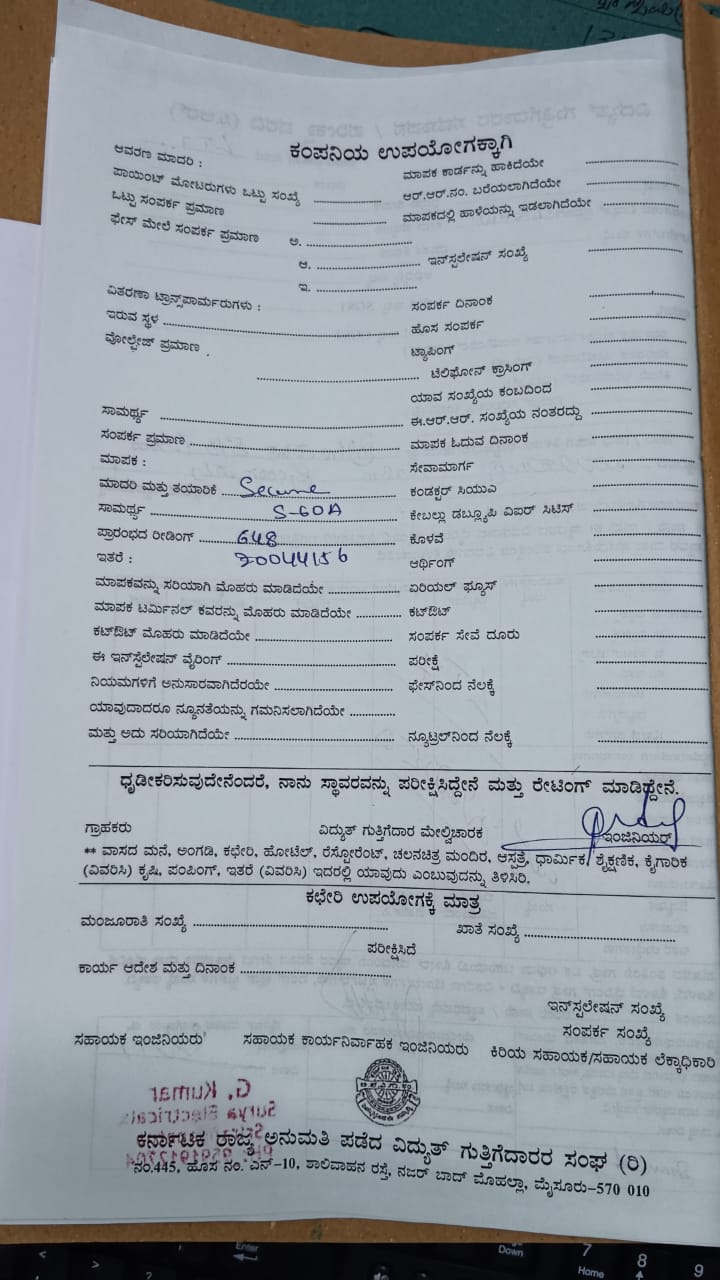 ಕಂಪನಿಯ ಉಪಯೋಗಕ್ಕಾಗಿ
ಆವರಣ ಮಾದರಿ :
ಮಾಪಕ ಕಾರ್ಡನ್ನು ಹಾಕಿದೆಯೇ
ಪಾಯಿಂಟ್ ಮೋಟರುಗಳು ಒಟ್ಟು ಸಂಖ್ಯೆ
ಆರ್.ಆರ್.ನಂ. ಬರೆಯಲಾಗಿದೆಯೇ
ಒಟ್ಟು ಸಂಪರ್ಕ ಪ್ರಮಾಣ
ಮಾಪಕದಲ್ಲಿ ಹಾಳೆಯನ್ನು ಇಡಲಾಗಿದೆಯೇ
ಫೇಸ್ ಮೇಲೆ ಸಂಪರ್ಕ ಪ್ರಮಾಣ ಅ.
ಆ. ಇನ್ಸ್‌ಪಲೇಷನ್ ಸಂಖ್ಯೆ
ಇ.
ವಿತರಣಾ ಟ್ರಾನ್ಸ್‌ಪಾರ್ಮರುಗಳು :
ಸಂಪರ್ಕ ದಿನಾಂಕ
ಇರುವ ಸ್ಥಳ
ಹೊಸ ಸಂಪರ್ಕ
ವೋಲ್ಟೇಜ್ ಪ್ರಮಾಣ
ಟ್ಯಾಪಿಂಗ್
ಟೆಲಿಫೋನ್ ಕ್ರಾಸಿಂಗ್
ಯಾವ ಸಂಖ್ಯೆಯ ಕಂಬದಿಂದ
ಸಾಮರ್ಥ್ಯ
ಈ.ಆರ್.ಆರ್. ಸಂಖ್ಯೆಯ ನಂತರದ್ದು
ಸಂಪರ್ಕ ಪ್ರಮಾಣ
ಮಾಪಕ ಓದುವ ದಿನಾಂಕ
ಮಾಪಕ :
ಸೇವಾಮಾರ್ಗ
ಮಾದರಿ ಮತ್ತು ತಯಾರಿಕೆ Secure
ಕಂಡಕ್ಟರ್ ಸಿಯುಎ
ಸಾಮರ್ಥ್ಯ 5-60A
ಕೇಬಲ್ಲು ಡಬ್ಲ್ಯೂಪಿ ವಿಐರ್ ಸಿಟಿಸ್
ಪ್ರಾರಂಭದ ರೀಡಿಂಗ್ 648
ಕೊಳವೆ
ಇತರೆ : 20044156
ಆರ್ಥಿಂಗ್
ಮಾಪಕವನ್ನು ಸರಿಯಾಗಿ ಮೊಹರು ಮಾಡಿದೆಯೇ
ಏರಿಯಲ್ ಫ್ಯೂಸ್
ಮಾಪಕ ಟರ್ಮಿನಲ್ ಕವರನ್ನು ಮೊಹರು ಮಾಡಿದೆಯೇ
ಕಟ್‌ಔಟ್
ಕಟ್‌ಔಟ್ ಮೊಹರು ಮಾಡಿದೆಯೇ
ಸಂಪರ್ಕ ಸೇವೆ ದೂರು
ಈ ಇನ್‌ಸ್ಪೆಲೇಷನ್ ವೈರಿಂಗ್
ಪರೀಕ್ಷೆ
ನಿಯಮಗಳಿಗೆ ಅನುಸಾರವಾಗಿದೆರಯೇ
ಫೇಸ್‌ನಿಂದ ನೆಲಕ್ಕೆ
ಯಾವುದಾದರೂ ನ್ಯೂನತೆಯನ್ನು ಗಮನಿಸಲಾಗಿದೆಯೇ
ಮತ್ತು ಅದು ಸರಿಯಾಗಿದೆಯೇ
ನ್ಯೂಟ್ರಲ್‌ನಿಂದ ನೆಲಕ್ಕೆ
ಧೃಡೀಕರಿಸುವುದೇನೆಂದರೆ, ನಾನು ಸ್ಥಾವರವನ್ನು ಪರೀಕ್ಷಿಸಿದ್ದೇನೆ ಮತ್ತು ರೇಟಿಂಗ್ ಮಾಡಿದ್ದೇನೆ.
ಗ್ರಾಹಕರು ವಿದ್ಯುತ್ ಗುತ್ತಿಗೆದಾರ ಮೇಲ್ವಿಚಾರಕ ಇಂಜಿನಿಯರ್
** ವಾಸದ ಮನೆ, ಅಂಗಡಿ, ಕಛೇರಿ, ಹೋಟೆಲ್, ರೆಸ್ಟೋರೆಂಟ್, ಚಲನಚಿತ್ರ ಮಂದಿರ, ಆಸ್ಪತ್ರೆ, ಧಾರ್ಮಿಕ, ಶೈಕ್ಷಣಿಕ, ಕೈಗಾರಿಕ
(ವಿವರಿಸಿ) ಕೃಷಿ, ಪಂಪಿಂಗ್, ಇತರೆ (ವಿವರಿಸಿ) ಇದರಲ್ಲಿ ಯಾವುದು ಎಂಬುವುದನ್ನು ತಿಳಿಸಿರಿ.
ಕಛೇರಿ ಉಪಯೋಗಕ್ಕೆ ಮಾತ್ರ
ಮಂಜೂರಾತಿ ಸಂಖ್ಯೆ ಖಾತೆ ಸಂಖ್ಯೆ
ಪರೀಕ್ಷಿಸಿದೆ
ಕಾರ್ಯ ಆದೇಶ ಮತ್ತು ದಿನಾಂಕ
ಇನ್‌ಸ್ಪಲೇಷನ್ ಸಂಖ್ಯೆ
ಸಂಪರ್ಕ ಸಂಖ್ಯೆ
ಸಹಾಯಕ ಇಂಜಿನಿಯರು ಸಹಾಯಕ ಕಾರ್ಯನಿರ್ವಾಹಕ ಇಂಜಿನಿಯರು ಕಿರಿಯ ಸಹಾಯಕ/ಸಹಾಯಕ ಲೆಕ್ಕಾಧಿಕಾರಿ
G. Kumar
Surya Electricals
ಕರ್ನಾಟಕ ರಾಜ್ಯ ಅನುಮತಿ ಪಡೆದ ವಿದ್ಯುತ್ ಗುತ್ತಿಗೆದಾರರ ಸಂಘ (ರಿ)
ನಂ.445, ಹೊಸ ನಂ. ಎನ್-10, ಶಾಲಿವಾಹನ ರಸ್ತೆ, ನಜರ್ ಬಾದ್ ಮೊಹಲ್ಲಾ, ಮೈಸೂರು-570 010
Enter
Down
7
8
9
Home